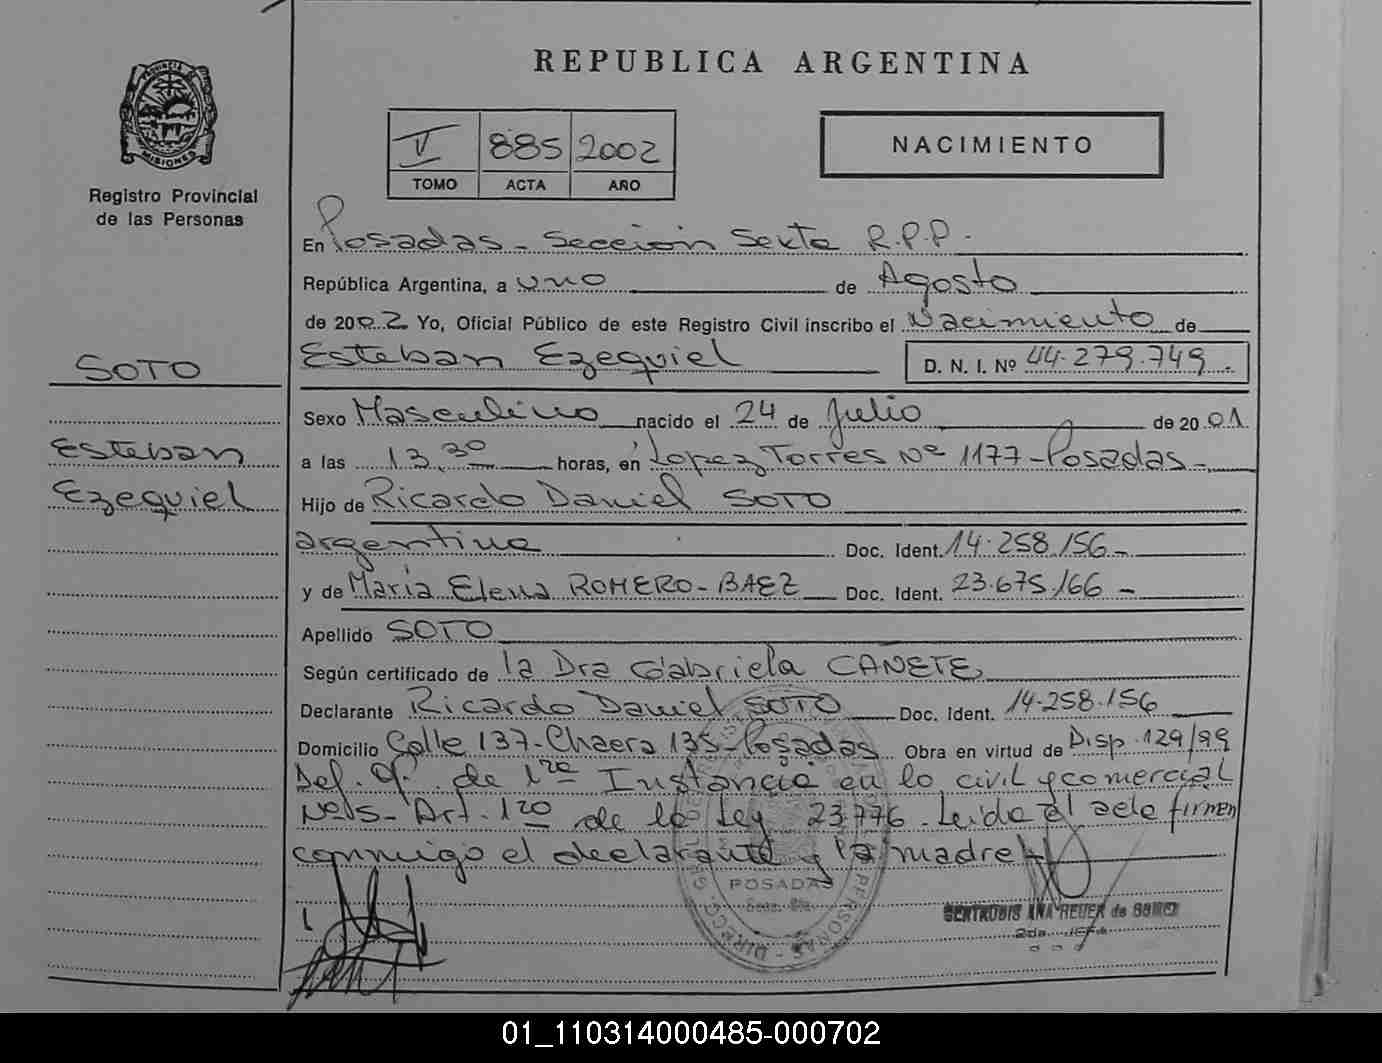 REPUBLICA ARGENTINA
PROVINCIA DE
MISIONES
Registro Provincial
de las Personas
V 885 2002
TOMO ACTA AÑO
NACIMIENTO
En Posadas - Seccion Sexta R.P.P.
República Argentina, a uno de Agosto
de 2002 Yo, Oficial Público de este Registro Civil inscribo el Nacimiento de
Esteban Ezequiel D. N. I. Nº 44.279.749
SOTO
Esteban
Ezequiel
Sexo Masculino nacido el 24 de Julio de 2001
a las 13,30 horas, en Lopez Torres Nº 1177 - Posadas -
Hijo de Ricardo Daniel SOTO
argentina Doc. Ident. 14.258.156 -
y de María Elena ROMERO - BAEZ Doc. Ident. 23.675.166 -
Apellido SOTO
Según certificado de la Dra Gabriela CAÑETE
Declarante Ricardo Daniel SOTO Doc. Ident. 14.258.156
Domicilio Calle 137 - Chacra 135 - Posadas Obra en virtud de Disp. 129/99
Def. Of. de 1ra Instancia en lo civil y comercial
Nº 5 - Art. 1ro de la Ley 23776. Leida el acta firman
conmigo el declarante y la madre
POSADAS
GERTRUDIS ANA REUER de GOMEZ
2da. JEFA
01_110314000485-000702